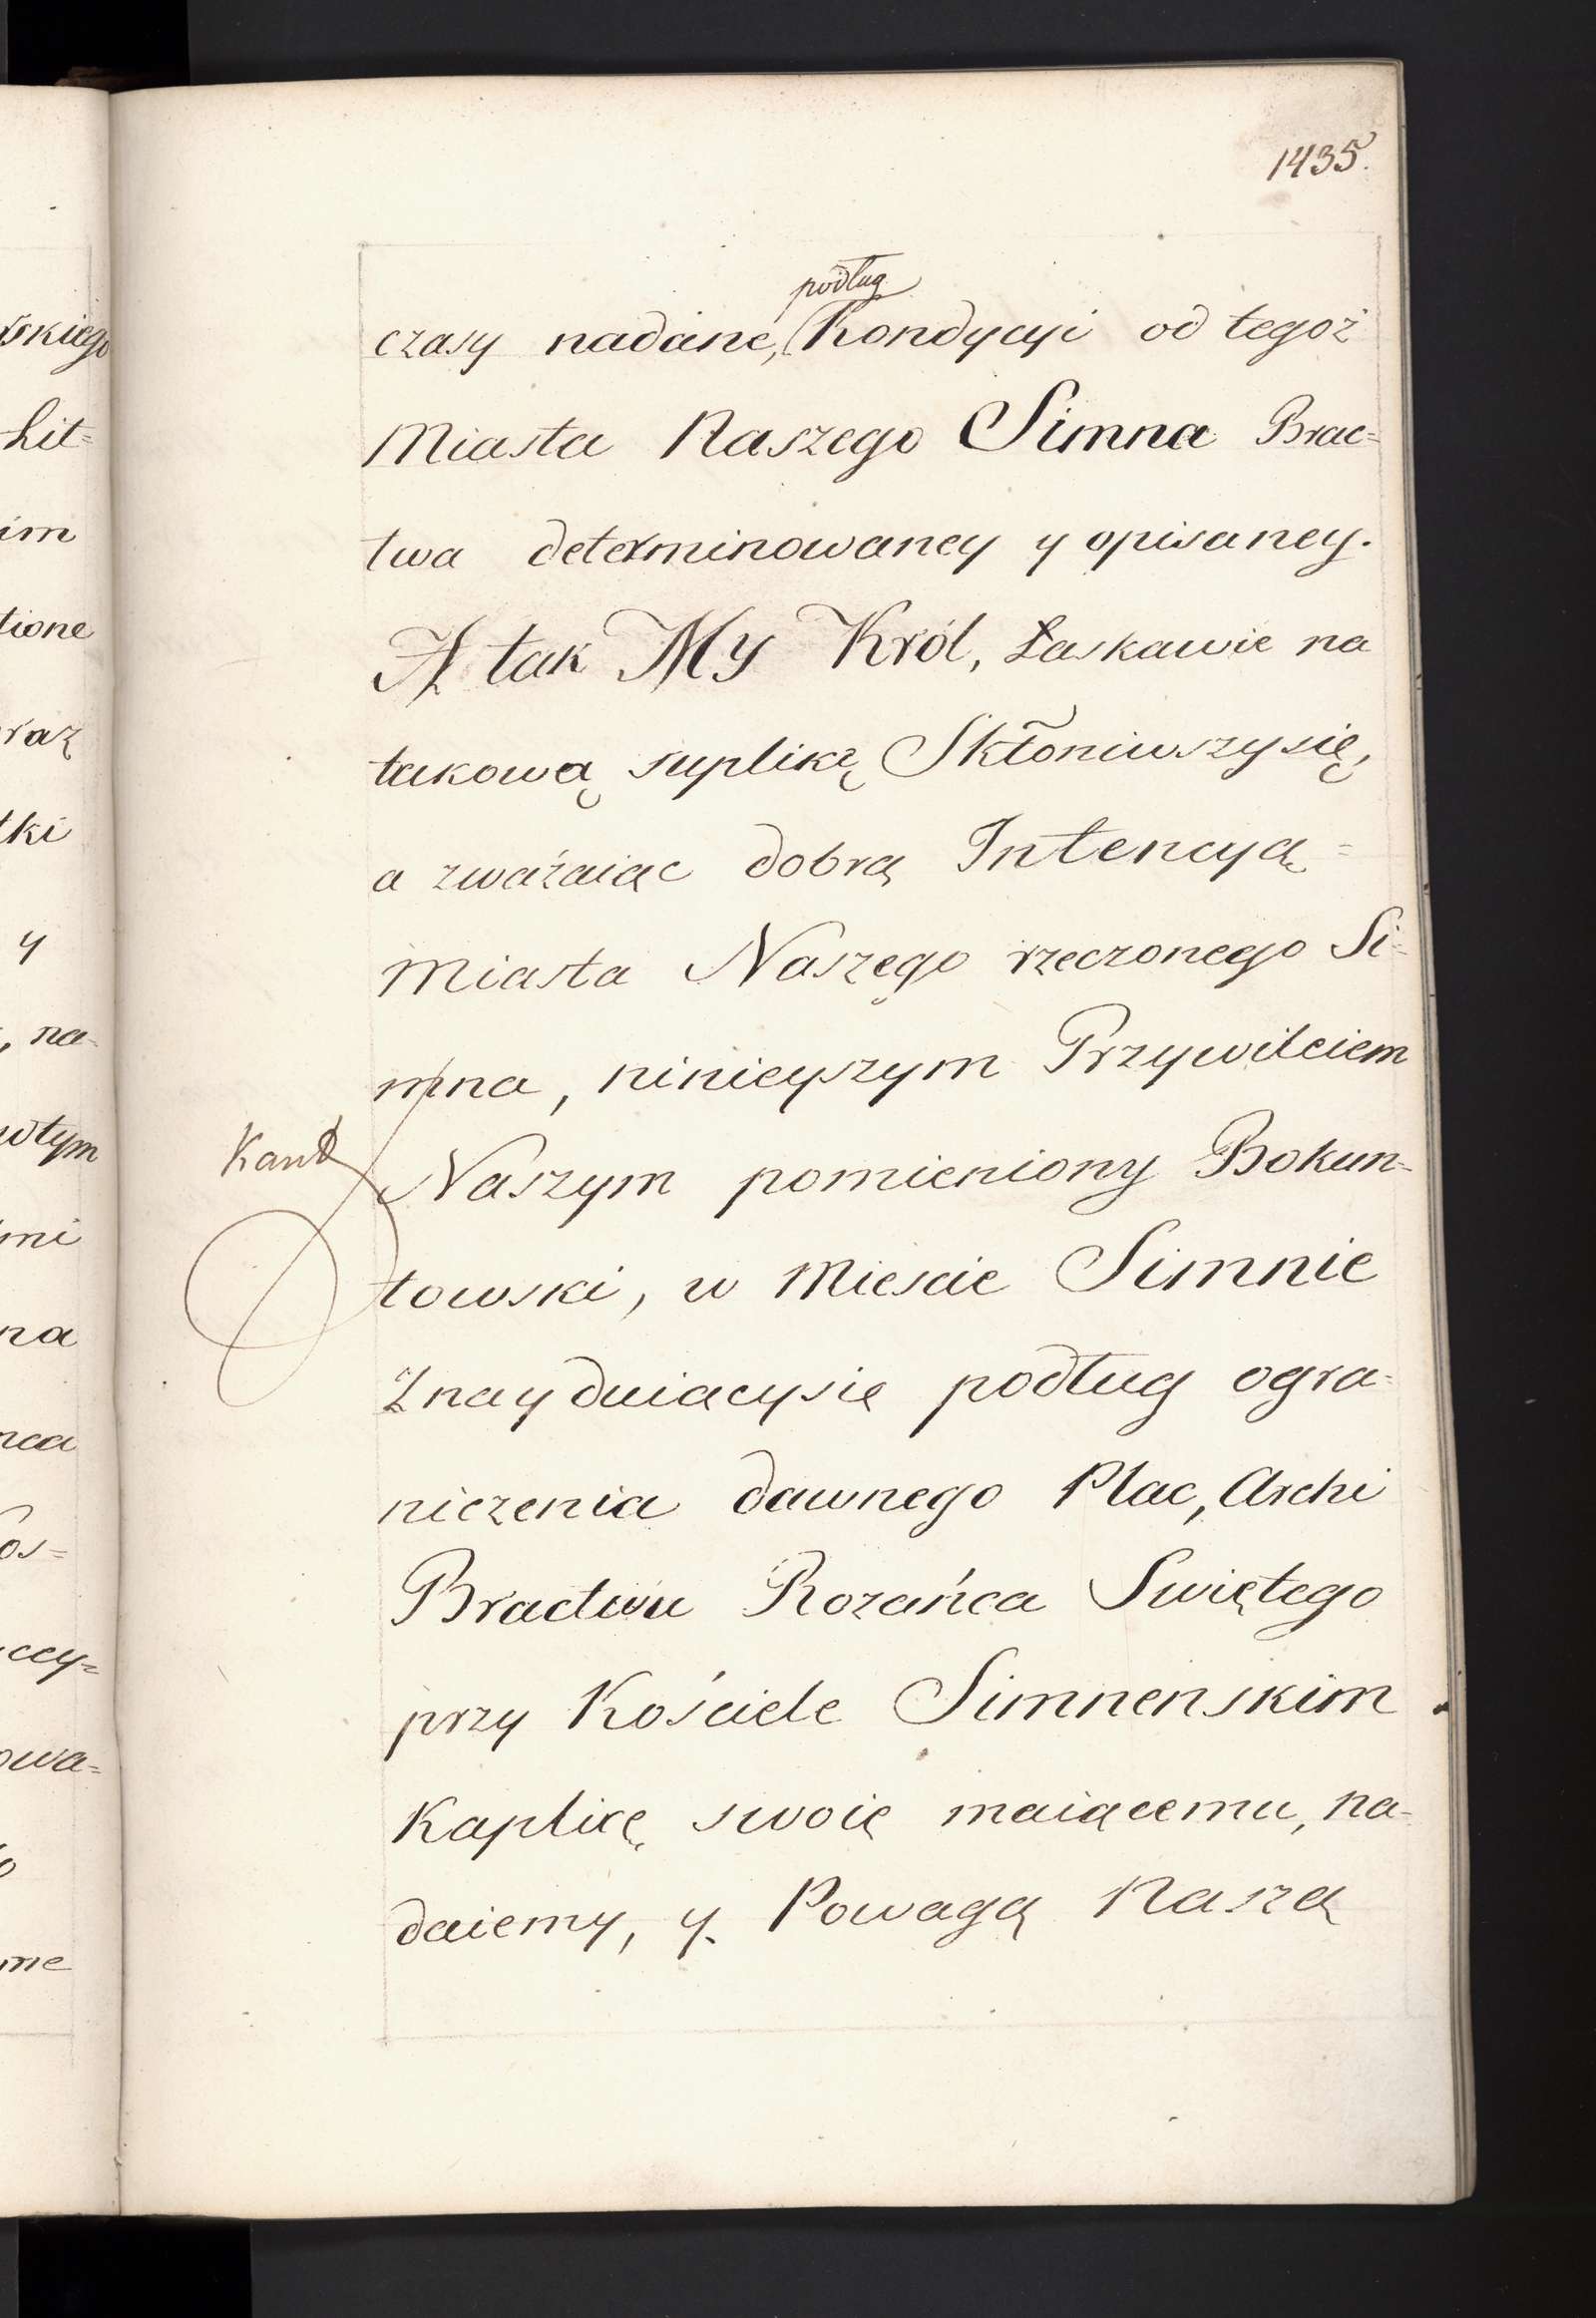 1435.
podług
czasy nadane, Kondycyi od tegoż
Miasta Naszego Simna Brac=
twa determinowaney y opisaney.
A tak My Król, Łaskawie na
takową suplikę Skłoniwszysię,
a zważaiąc dobrą Intencyą=
Miasta Naszego rzeczonego Si=
mna, ninieyszym Przywileiem
Naszym pomieniony Bokun=
towski, w Miescie Simnie
Znayduiącysię podług ogra=
niczenia dawnego Plac, Archi
Bractwu Rozańca Swiętego
przy Kościele Simnenskim
Kaplicę swoię maiącemu, na=
daiemy, y Powagą Naszą
skiego
Lit=
im
tione
raz
tki
y
, na=
wtym
mi
na
nca
os=
ccy=
owa=
me